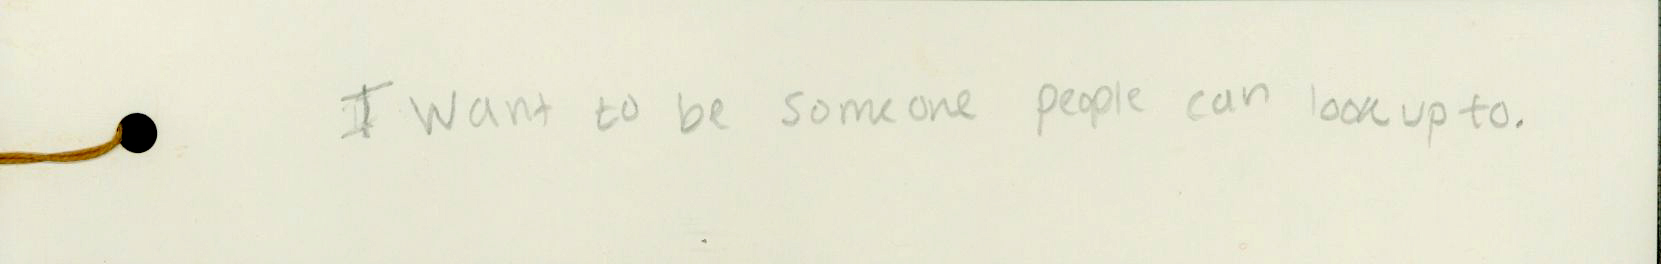 I want to be someone people can look up to.